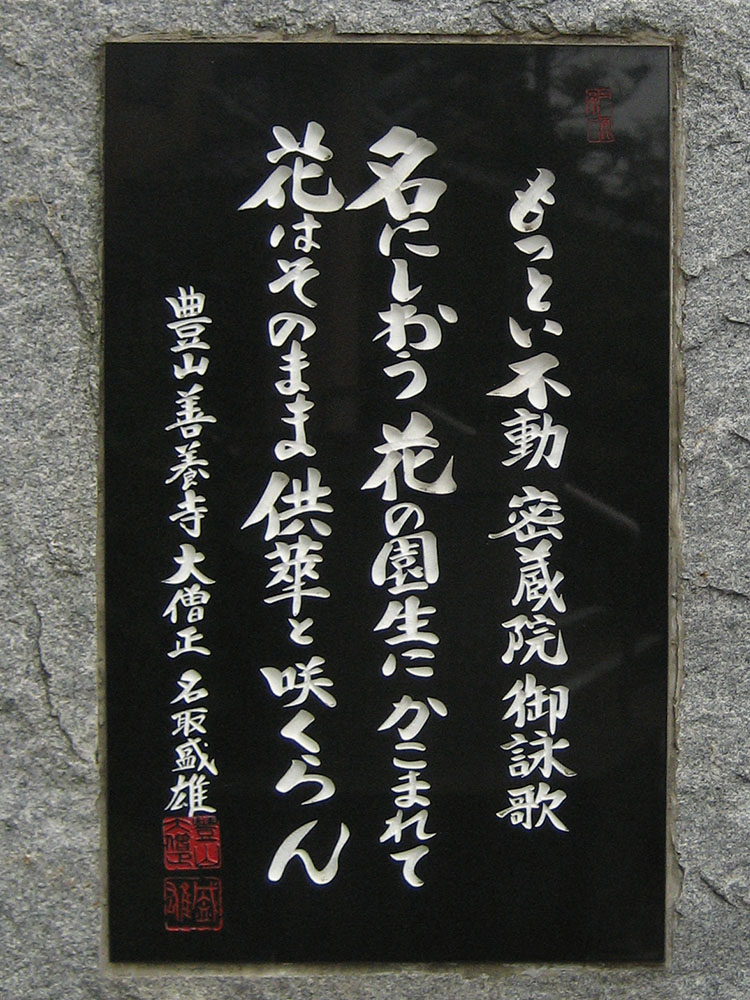 もっとい不動 密蔵院 御詠歌
名にしおう 花の園生に かこまれて
花はそのまま 供華と 咲くらん
豊山 善養寺 大僧正 名取盛雄